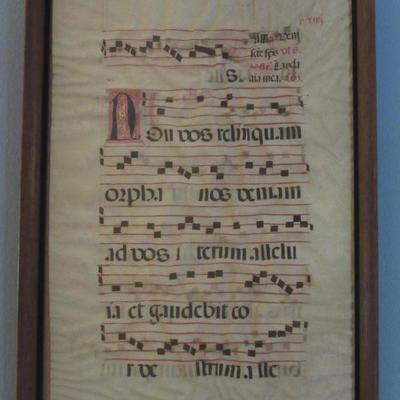 Non vos relinquam
orpha nos veniam
ad vos i terum allelu
ia et gaudebit co
r ve strum alle